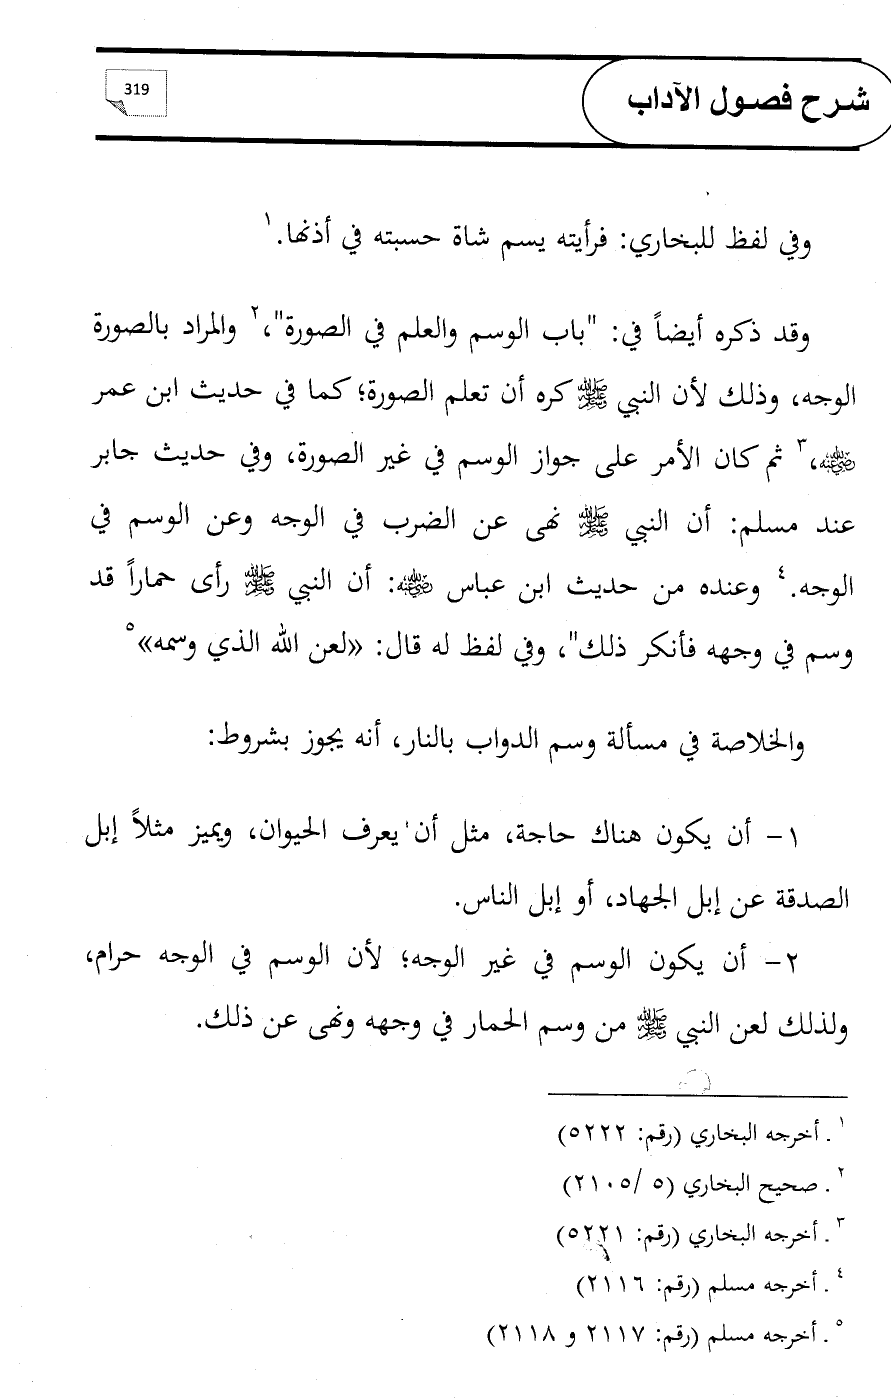 شرح فصول الآداب
319
وفي لفظ للبخاري: فرأيته يسم شاة حسبته في أذنها.١
وقد ذكره أيضاً في: "باب الوسم والعلم في الصورة"،٢ والمراد بالصورة
الوجه، وذلك لأن النبي ﷺ كره أن تعلم الصورة؛ كما في حديث ابن عمر
رضي الله عنه،٣ ثم كان الأمر على جواز الوسم في غير الصورة، وفي حديث جابر
عند مسلم: أن النبي ﷺ نهى عن الضرب في الوجه وعن الوسم في
الوجه.٤ وعنده من حديث ابن عباس رضي الله عنه: أن النبي ﷺ رأى حماراً قد
وسم في وجهه فأنكر ذلك"، وفي لفظ له قال: «لعن الله الذي وسمه»٥
والخلاصة في مسألة وسم الدواب بالنار، أنه يجوز بشروط:
١- أن يكون هناك حاجة، مثل أن يعرف الحيوان، ويميز مثلاً إبل
الصدقة عن إبل الجهاد، أو إبل الناس.
٢- أن يكون الوسم في غير الوجه؛ لأن الوسم في الوجه حرام،
ولذلك لعن النبي ﷺ من وسم الحمار في وجهه ونهى عن ذلك.
١. أخرجه البخاري (رقم: ٥٢٢٢)
٢. صحيح البخاري (٥ /٢١٠٥)
٣. أخرجه البخاري (رقم: ٥٢٢١)
٤. أخرجه مسلم (رقم: ٢١١٦)
٥. أخرجه مسلم (رقم: ٢١١٧ و ٢١١٨)